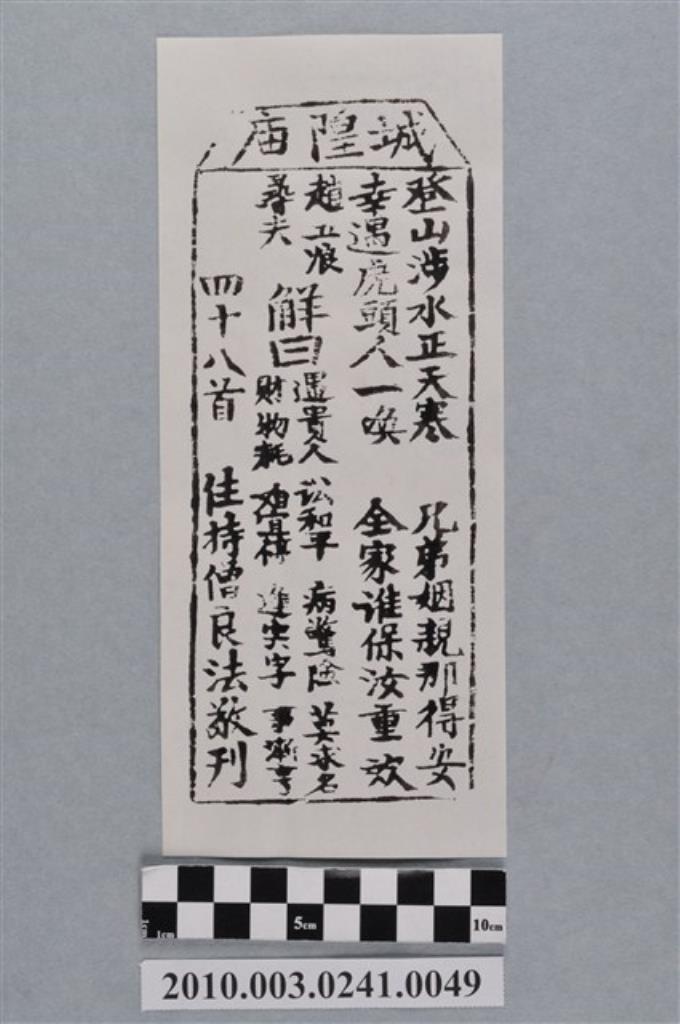 城隍庙
登山涉水正天寒 兄弟姻親那得安
幸遇虎頭人一喚 全家谁保汝重欢
趙五娘
尋夫
解曰
遇貴人 訟和平 病驚险 莫求名
財物耗 逢寅字 事漸亨
四十八首 住持僧良法敬刊
5cm
1cm
10cm
2010.003.0241.0049